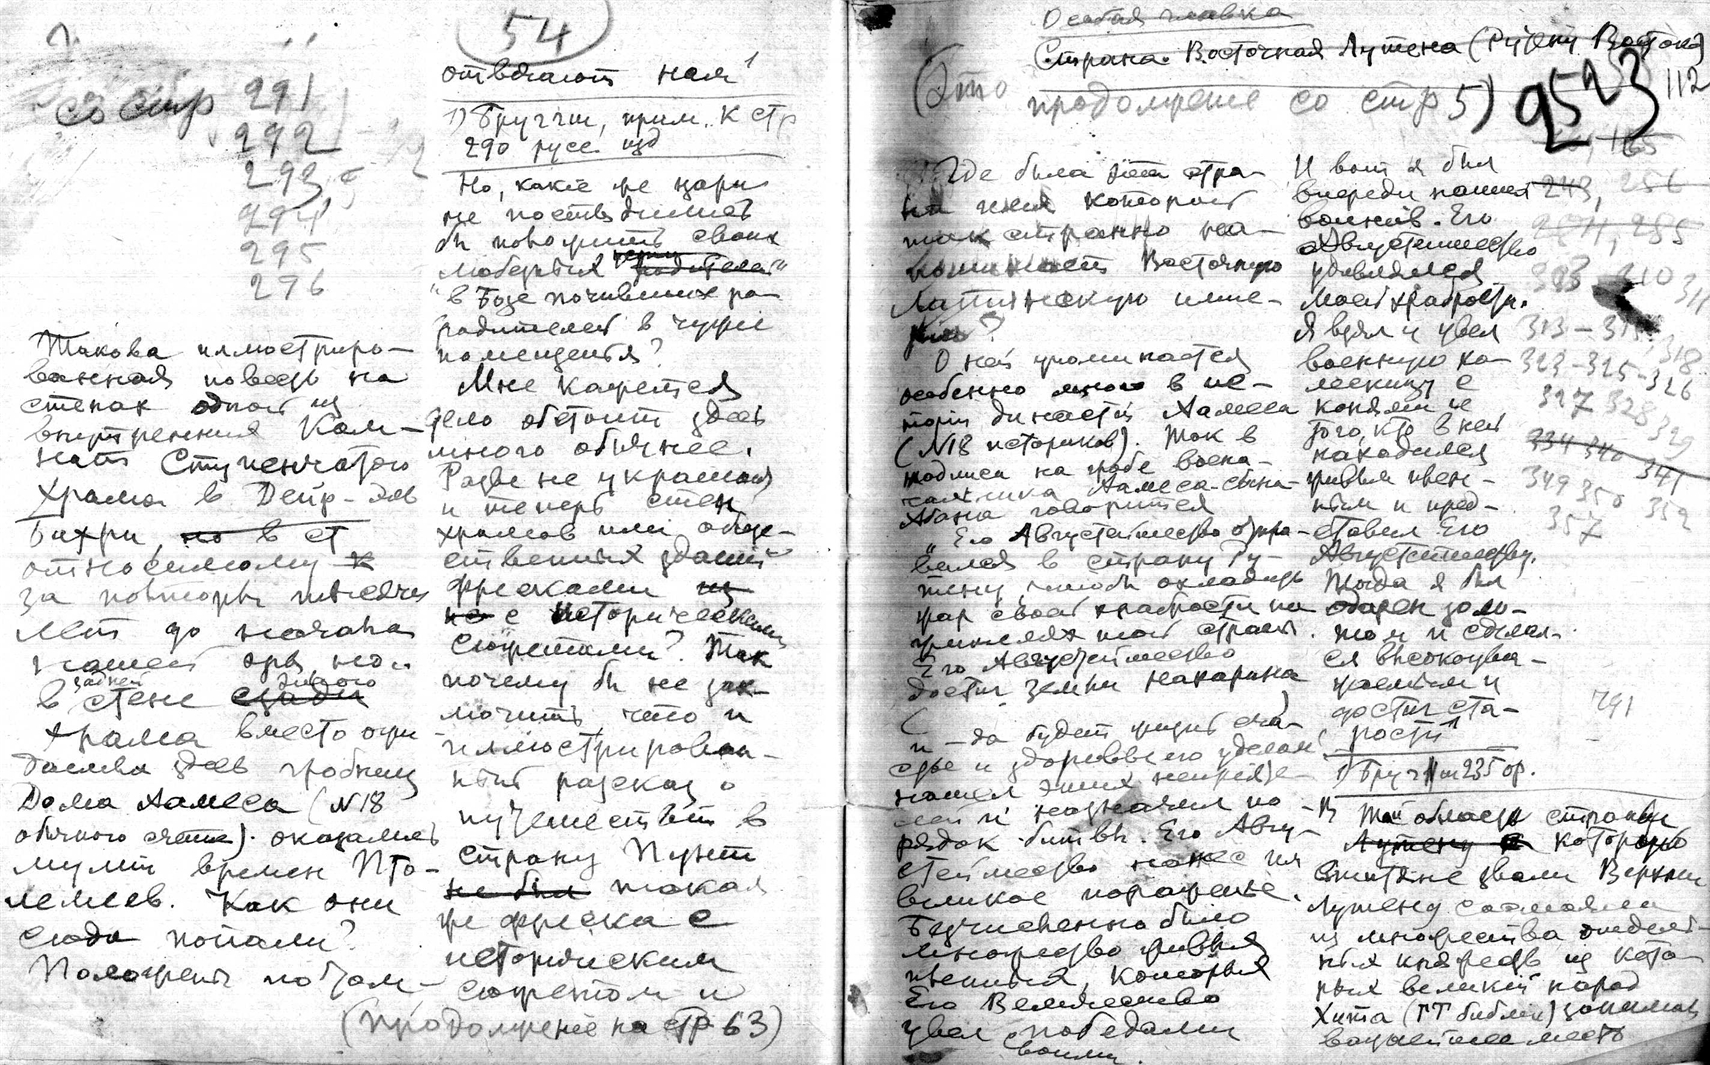 54
со стр 291
292
293
294
295
296
Такова иллюстриро-
ванная повесть на
стенах одной из
внутренних Ком-
нат Ступенчатого
храма в Дейр-эль
Бахри, но в ст
относимому
за полторы тысячи
лет до начала
нашей эры, но
в задней стене сзади этого
храма вместо ожи
даемых здесь гробниц
Дома Аамеса (N18
обычного счета) оказались
мумии времен Пто-
лемеев. Как они
сюда попали?
Положены потом-
отвечают нам 1
1) Бругш, прим. к стр
290 русс. изд
Но, какие же цари
не постыдились
бы положить своих
любезных родителей
"в Бозе почивших ро-
родителей в чужие
помещения?
Мне кажется
дело обстоит здесь
много обычнее.
Разве не украшают
и теперь стен
храмов или обще-
ственных зданий
фресками из
но с историческими
сюжетами? Так
почему бы не зак-
лючить, что и
иллюстрирован-
ный рассказ о
путешествии в
страну Пунт
не был такая
же фреска с
историческим
сюжетом и
(продолжение на стр 63)
Особая главка
Страна Восточная Лутена (Рутену Востока)
(Это продолжение со стр 5) 9523 112
Где была эта стра-
на имя которой
так странно на-
поминает Восточную
Латинскую импе-
рию?
О ней упоминается
особенно много в ис-
тории династии Аамеса
(N18 историков). Так в
надписи на гробе воена-
чальника Аамеса-сына-
Абана говорится
"Его Августейшество отпра-
вился в страну Ру-
тену, чтобы охладить
жар своей храбрости на
жителях той страны.
Его Августейшество
достиг земли Накарина
и – да будет жизнь сча-
стье и здоровье его уделом,
нашел этих неприяте-
лей и назначил по-
рядок битвы. Его Авгу-
стейшество нанес им
великое поражение.
Бесчисленно было
множество живых
пленных, которых
Его Величество
увел победами
своими.
И вот я был
впереди наших
воинов. Его
Августейшество
удивлялся
моей храбрости.
Я взял и увел
военную ко-
лесницу с
конями и
того, кто в ней
находился
живым плен-
ным и пред-
ставил Его
Августейшеству.
Тогда я был
одарен золо-
том и сделал-
ся высокоува-
жаемым и
достиг ста-
рости 1
1) Бругш 235 стр.
Той областью страны
Лутену которую
египтяне звали Верхним
Лутену составляли
из множества отдель-
ных княжеств из кото-
рых великий народ
Хита (ГТ библии) занимал
важнейшее место
243, 256
254, 255
313 – 
323 – 325 – 326
327 328 329
334 340 341
349 350 352
357
791